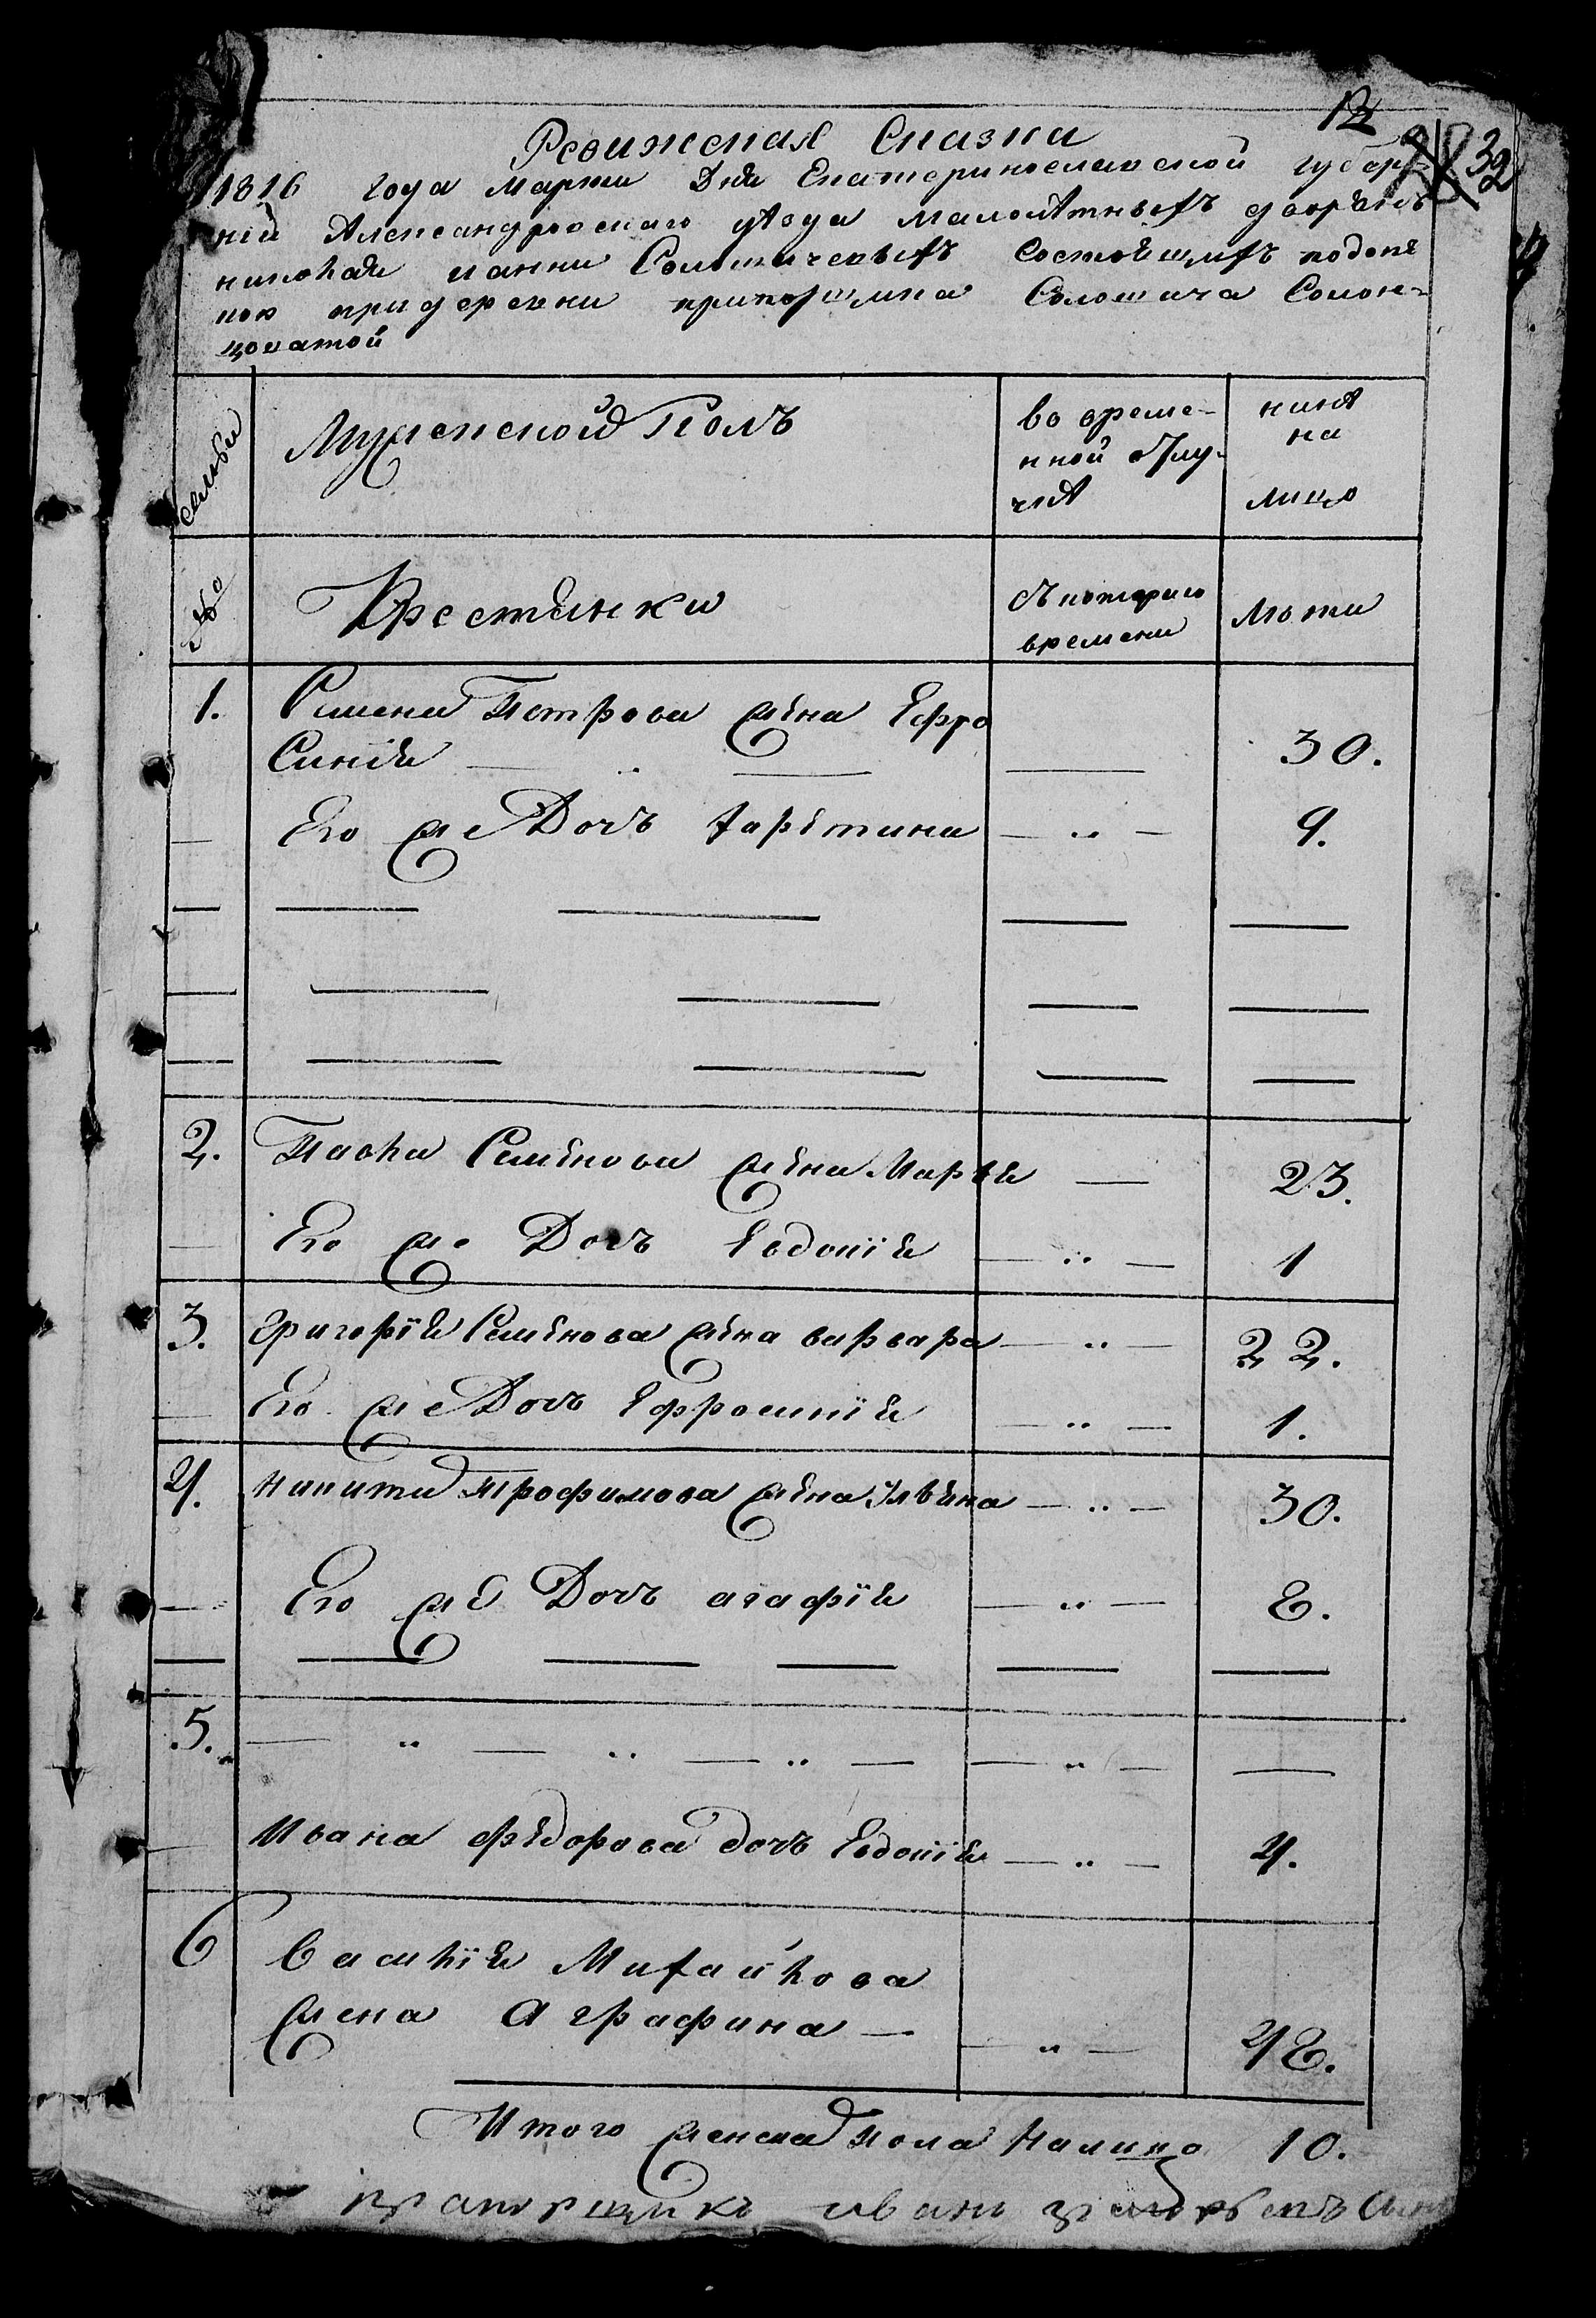 12
32
Ревижская Сказка
1816 года Марта Дня Екатеринославской губер-
нiи Александровскаго уѣзда малолѣтныхъ дворянъ
николая и анни Соломичевыхъ состоящихъ подопе
кою при деревни прапорщика Соломича Солон-
цоватой
семьи
Мужеской Полъ
во време-
нной отлу-
чкѣ
нинѣ
на
лицо
№
Крестянки
съ котораго
времени
лѣта
1. Симена Петрова жена Ефро
Синiя — 30.
Его же Дочъ Харетина — 9.
2. Павла Семенова жена Маря — 23.
Его же Дочъ Евдокiя — 1
3. Григорiя Семенова жена варвара — 22.
Его же Дочъ Ефросинiя — 1.
4. Никити Трофимова жена Улвяна — 30.
Его же Дочъ агафiя — 8.
5.
Ивана Федорова дочъ Евдокiя — 4.
6 Василiя Михайлова
жена Аграфина — 48.
Итого женска пола Налицо 10.
прапорщикъ иванъ